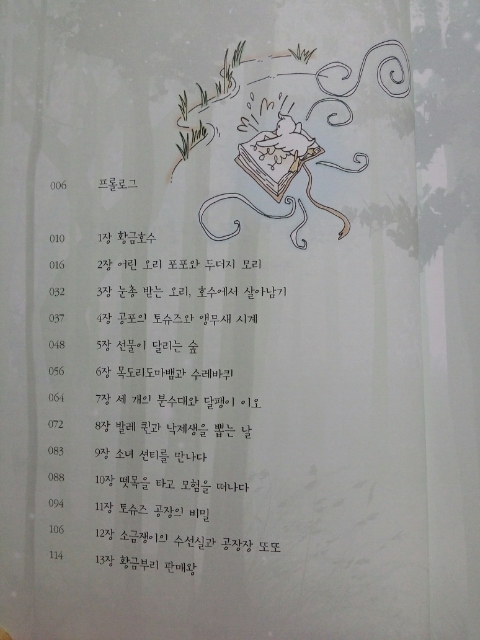 006 프롤로그
010 1장 황금호수
016 2장 어린 오리 포포와 두더지 모리
032 3장 눈총 받는 오리, 호수에서 살아남기
037 4장 공포의 토슈즈와 앵무새 시계
048 5장 선물이 달리는 숲
056 6장 목도리도마뱀과 수레바퀴
064 7장 세 개의 분수대와 달팽이 이오
072 8장 발레 퀸과 낙제생을 뽑는 날
083 9장 소녀 션티를 만나다
088 10장 뗏목을 타고 모험을 떠나다
094 11장 토슈즈 공장의 비밀
106 12장 소금쟁이의 수선실과 공장장 또또
114 13장 황금부리 판매왕